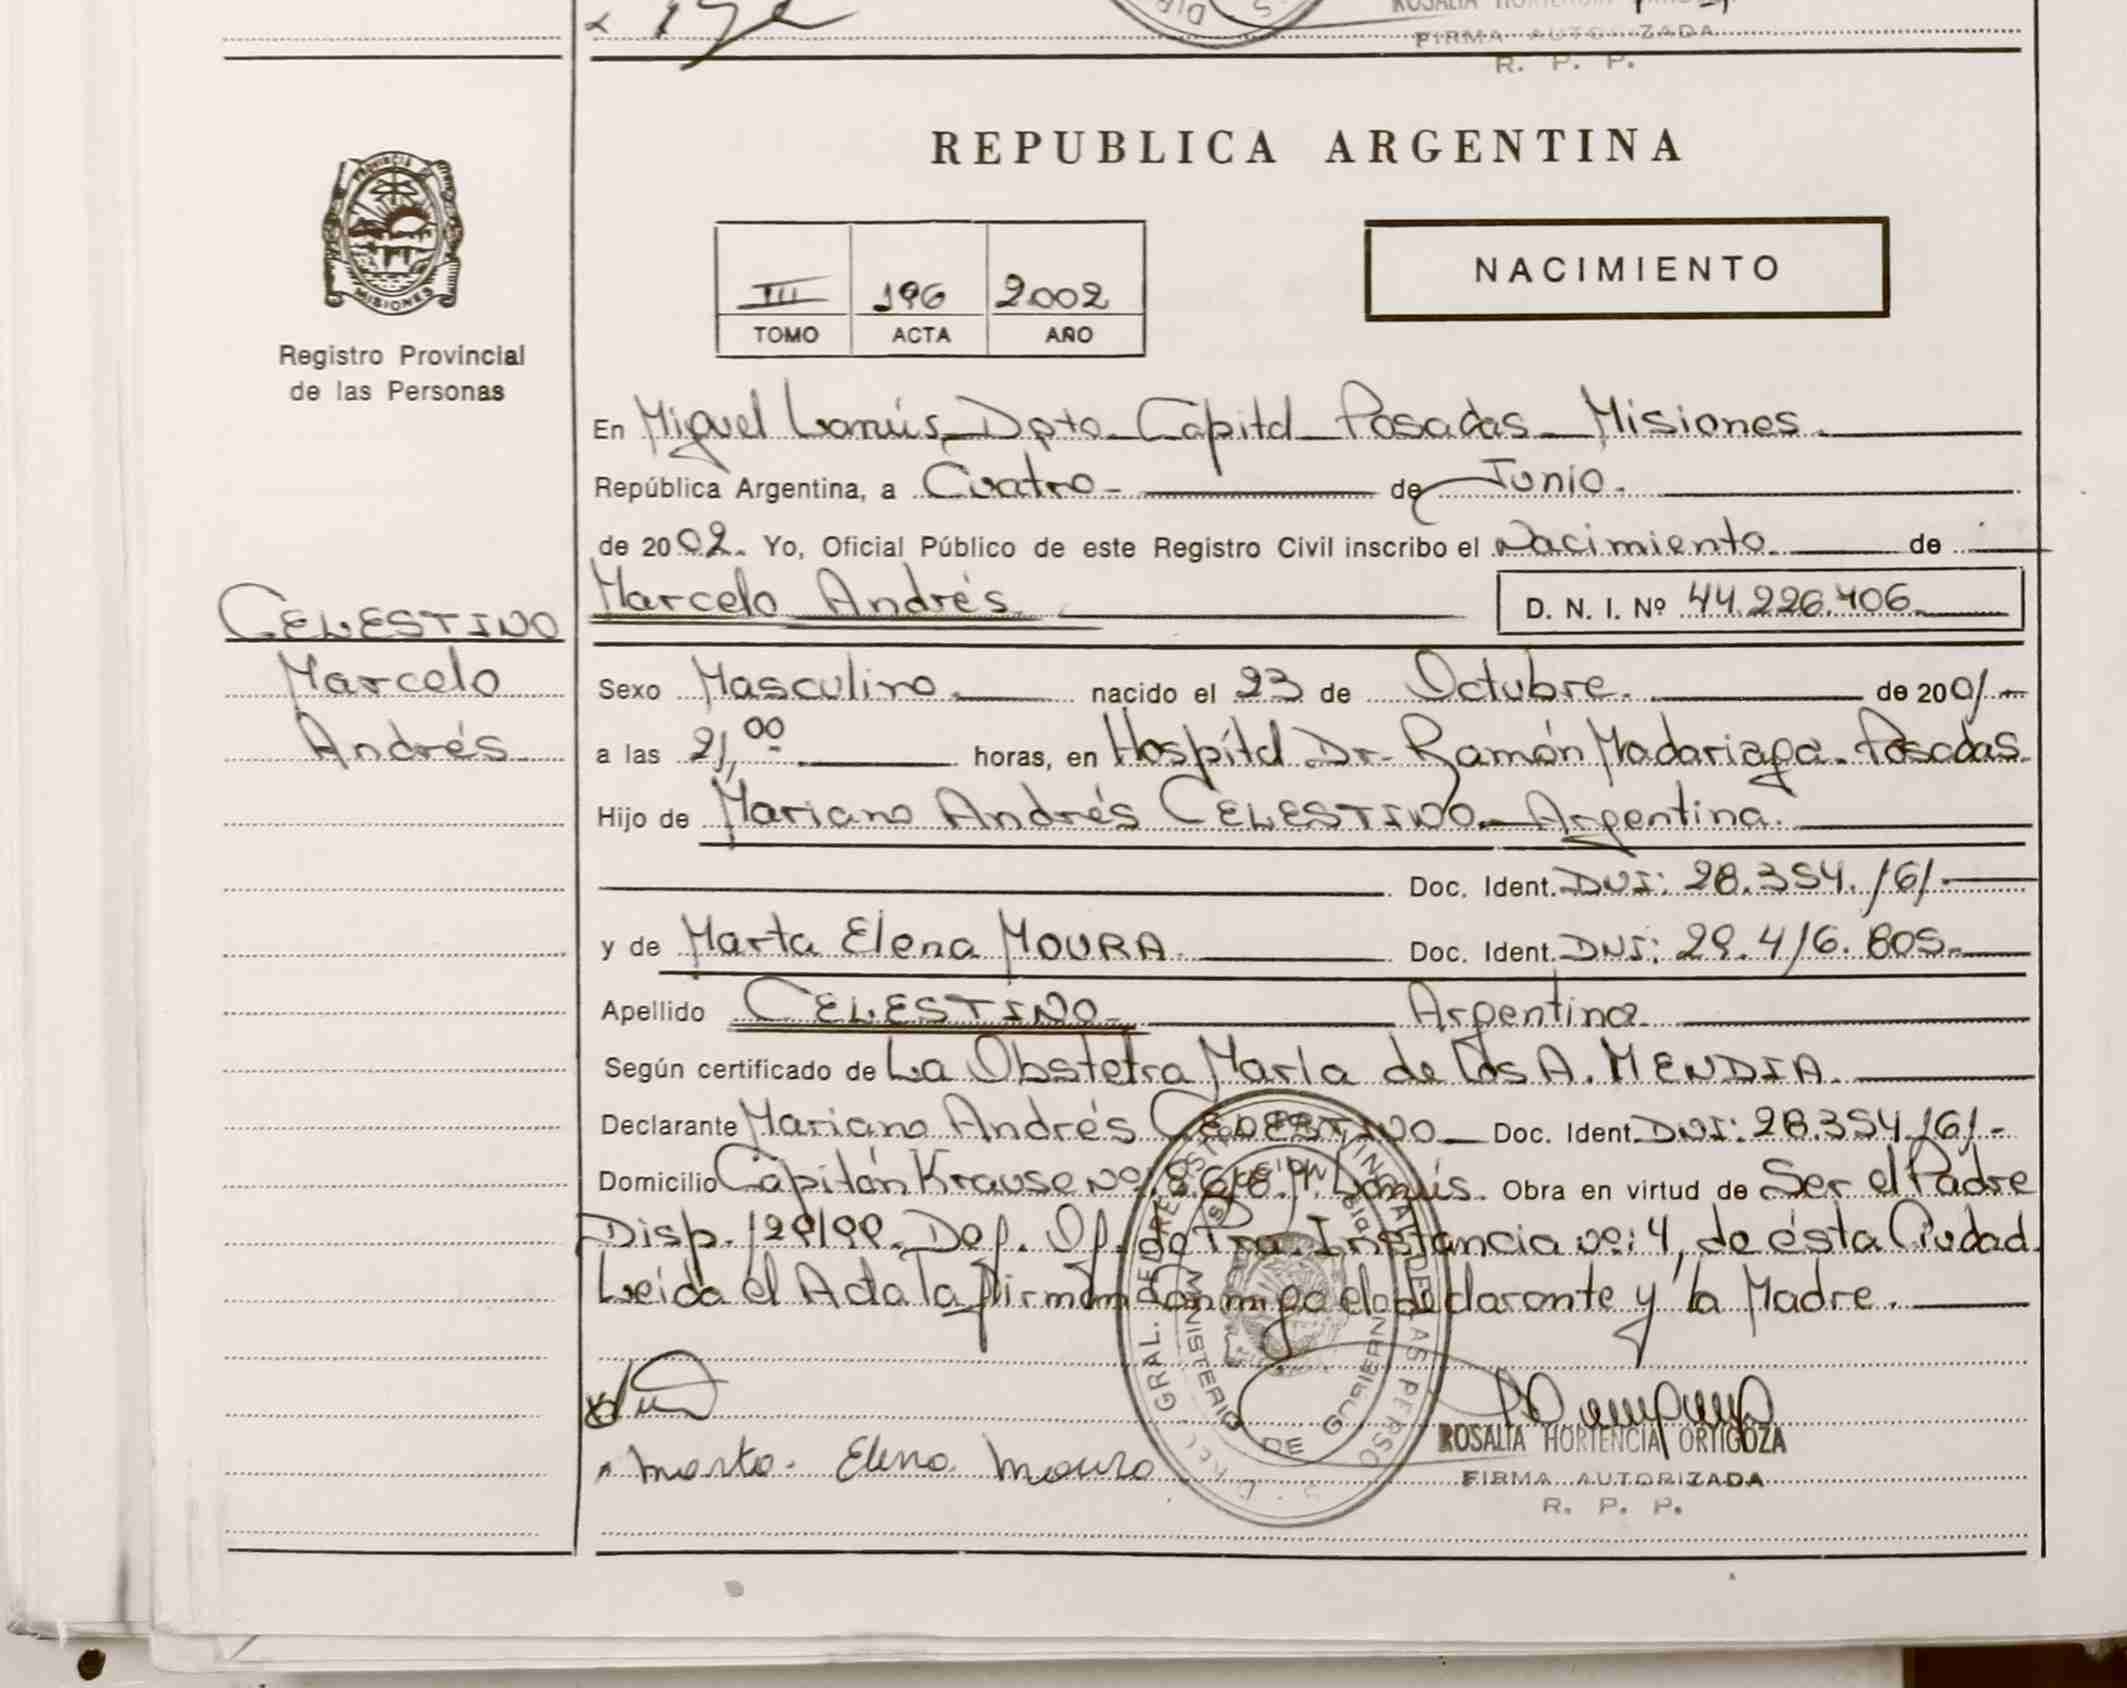 ROSALIA HORTENCIA
FIRMA AUTORIZADA
R. P. P.
REPUBLICA ARGENTINA
PROVINCIA DE MISIONES
Registro Provincial
de las Personas
NACIMIENTO
III 196 2002
TOMO ACTA AÑO
En Miguel Lanús Dpto Capital Posadas Misiones
República Argentina, a Cuatro de Junio.
de 2002. Yo, Oficial Público de este Registro Civil inscribo el Nacimiento de
Marcelo Andrés D. N. I. Nº 44.226.406
CELESTINO
Marcelo
Andrés
Sexo Masculino nacido el 23 de Octubre de 2001
a las 21,00 horas, en Hospital Dr. Ramón Madariaga. Posadas
Hijo de Mariano Andrés CELESTINO Argentina.
Doc. Ident. DNI: 28.354.161
y de Marta Elena MOURA Doc. Ident. DNI: 29.416.805
Apellido CELESTINO Argentina
Según certificado de La Obstetra María de los A. MENDIA.
Declarante Mariano Andrés CELESTINO Doc. Ident. DNI: 28.354.161
Domicilio Capitán Krause Nº: Lanús. Obra en virtud de Ser el Padre
Disp. Def. Of. de Instancia Nº: 4, de ésta Ciudad.
Leida el Acta la firman conmigo el declarante y la Madre.
Marta Elena Moura
MINISTERIO DE GOBIERNO
ROSALIA HORTENCIA ORTIGOZA
FIRMA AUTORIZADA
R. P. P.